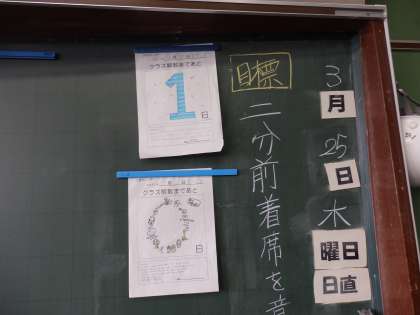 3
月
25
日
木
曜日
日直
目標
二分前着席を意
クラス解散まであと
1
日
クラス解散まであと
0
日